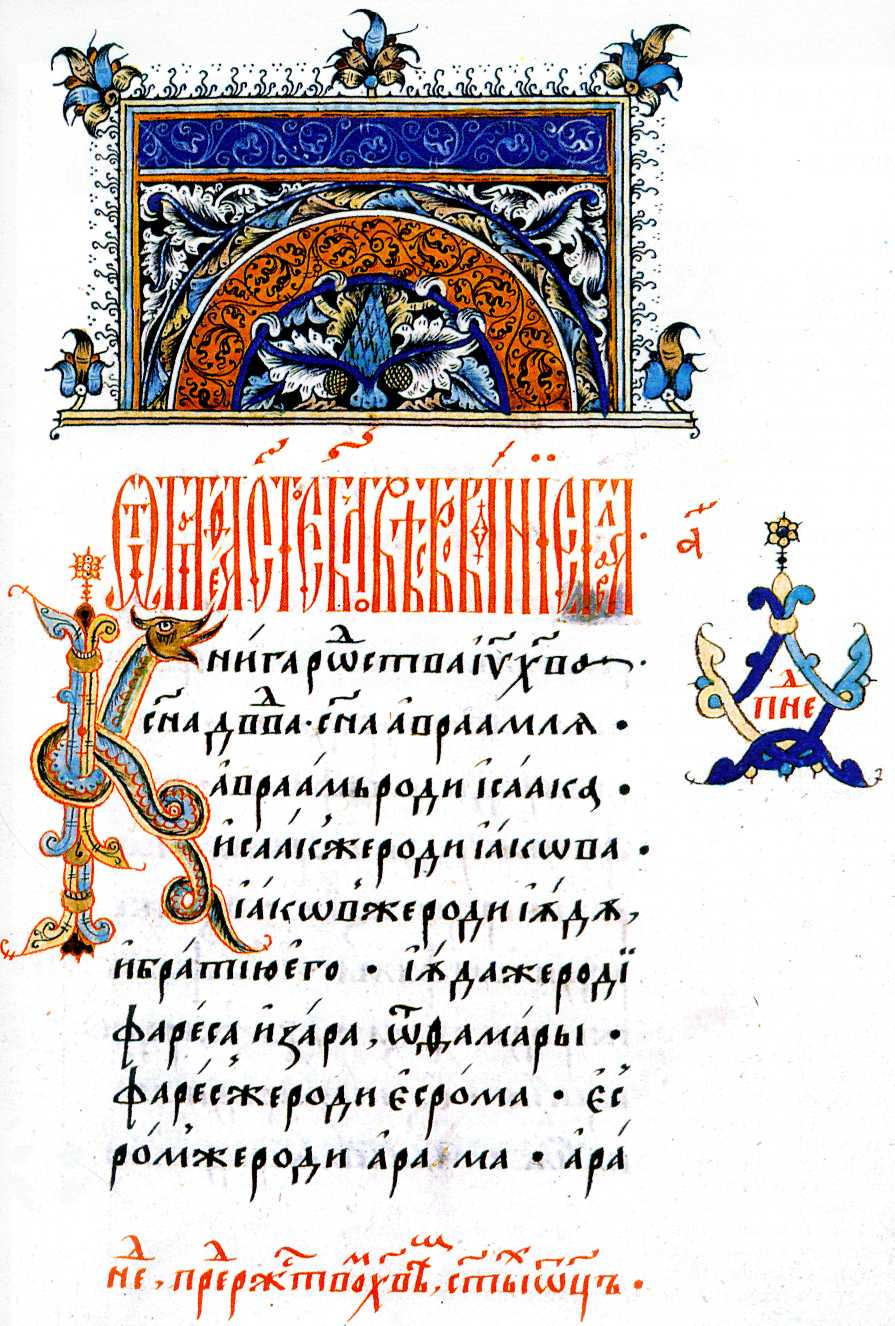 Ѿ маⷮѳеа ст҃ое бл҃говѣствованїе глава · а҃
Кни́га рѡⷤства і҆у҃ х҃во ·
сн҃а дв҃два · сн҃а а҆враамлѧ ·
а҆враа́мь роди і҆саака ·
и҆саа́к же роди і҆а́кѡва ·
і҆а́кѡв же роди і҆ю́дѫ,
и҆ бра́тїю е҆го · і҆ю́да же родї
фаре́са и҆ за́ра, ѿ ѳама́ры ·
фаре́с же роди е҆сро́ма · е҆с
ро́м же роди а҆ра́ма · а҆ра́
пнеⷣ
неⷣ, преⷣ ржⷭтвоⷨ хв҃ѣⷨ, ст҃ыⷯ ѿц҃ъ ·